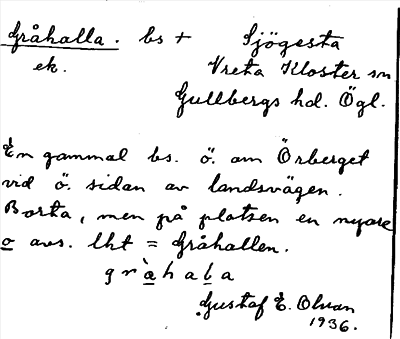 Gråhalla. bs + Sjögesta
ek. Vreta Kloster sn
Gullbergs hd. Ögl.
En gammal bs. ö. om Örberget
vid ö. sidan av landsvägen.
Borta, men på platsen en nyare
o avs. lht = Gråhallen.
gràhala
Gustaf E. Olsson
1936.